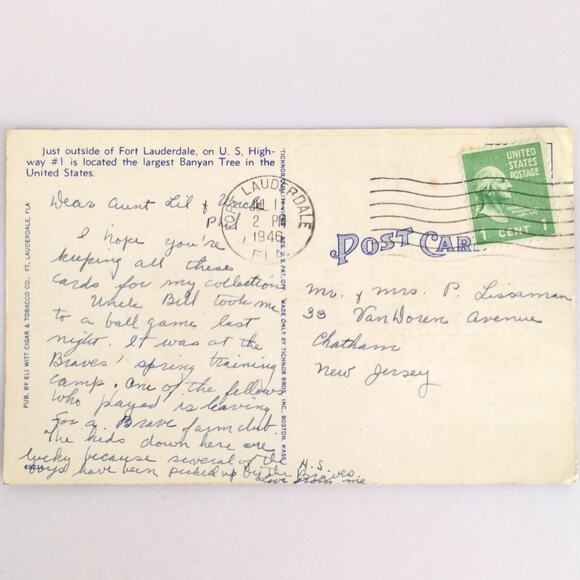 Just outside of Fort Lauderdale, on U. S, High-
way #1 is located the largest Banyan Tree in the
United States.
Dear Aunt Lil & Uncle
Phil
I hope you're
keeping all these
cards for my collection
Uncle Bill took me
to a ball game last
night. It was at the
Braves' spring training
camp. One of the fellows
who played is leaving
for a Brave farm club.
The kids down here are
lucky because several of the
boys have been picked up by the Braves.
H.S.
Love from me
PUB. BY ELI WITT CIGAR & TOBACCO CO., FT. LAUDERDALE, FLA
TICHNOR
REG. U.S. PAT. OFF. MADE ONLY BY TICHNOR BROS., INC., BOSTON, MASS.
FORT LAUDERDALE
2 PM
1946
FLA
UNITED
STATES
POSTAGE
1 CENT 1
POST CARD
Mr. & Mrs. P. Lissaman
33 VanDoren Avenue
Chatham
New Jersey